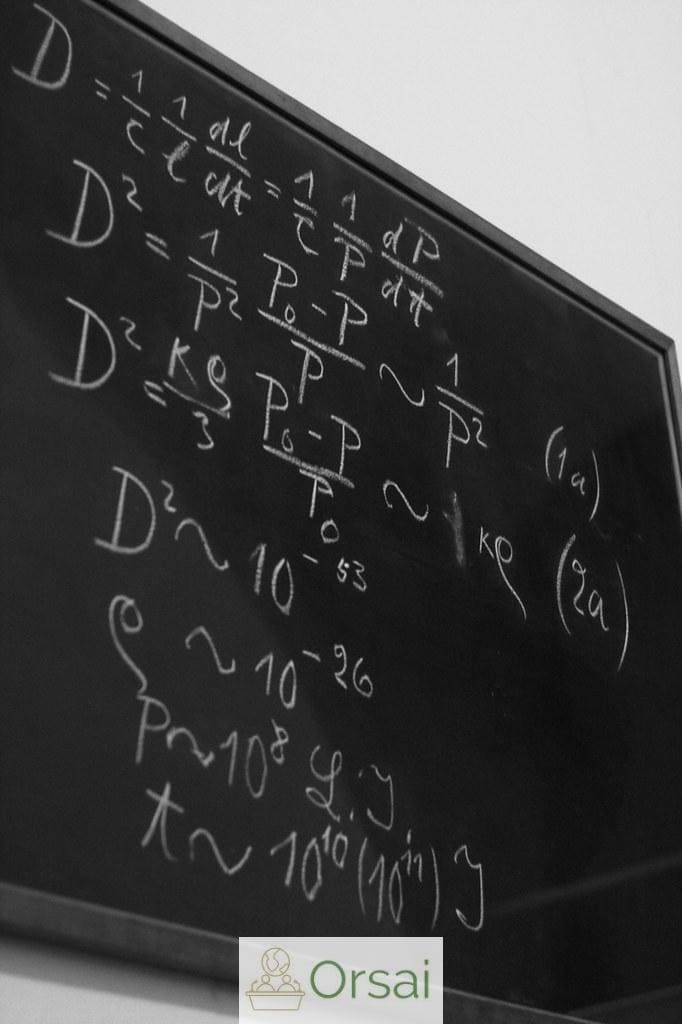 D = 1/c 1/l dl/dt = 1/c 1/P dP/dt
D² = 1/P² P₀-P/P ~ 1/P² (1a)
D² = κρ/3 P₀-P/P₀ ~ κρ (2a)
D² ~ 10⁻⁵³
ρ ~ 10⁻²⁶
P ~ 10⁸ L.J.
t ~ 10¹⁰(10¹¹) J
Orsai